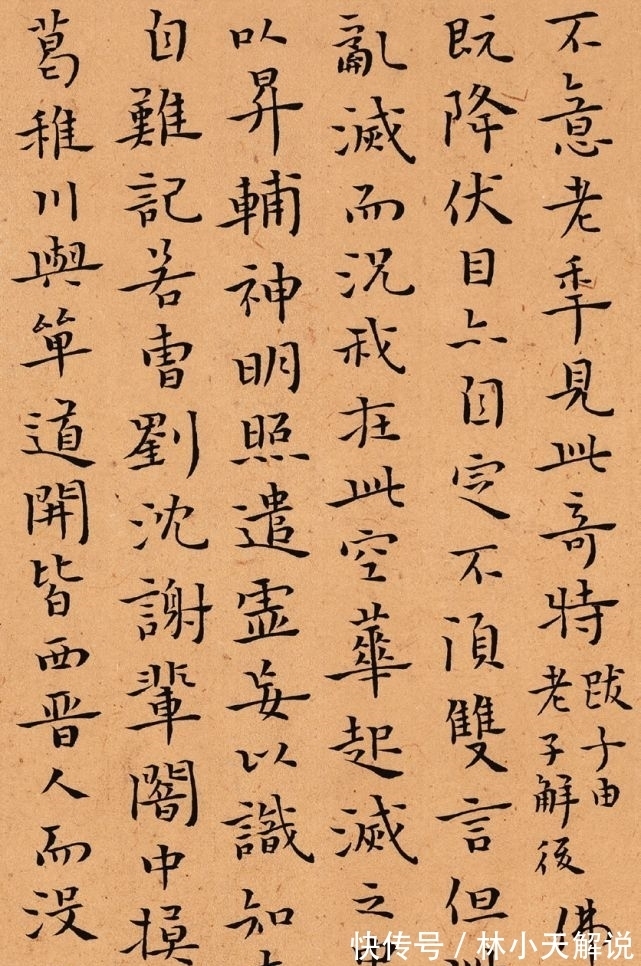 不意老年見此奇特
跋子由
老子解後
佛
既降伏目亦自定不須雙言但
亂滅而況我在此空華起滅之
以昇輔神明照遣虛妄以識知
自難記若曹劉沈謝輩闇中摸
葛稚川與單道開皆西晉人而没
快传号 / 林小天解说